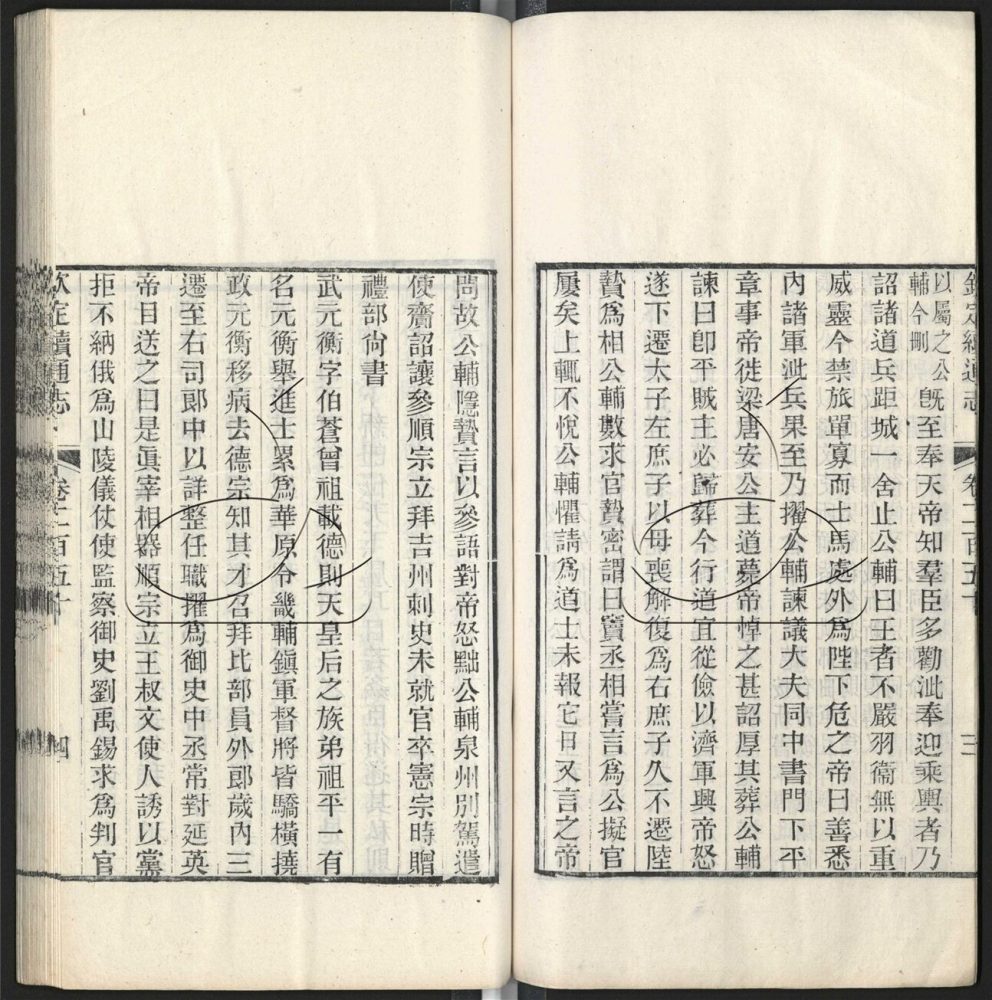 欽定續通志 卷二百五十 三
以屬之公
輔今刪 旣至奉天帝知羣臣多勸泚奉迎乘輿者乃
詔諸道兵距城一舍止公輔曰王者不嚴羽衞無以重
威靈今禁旅單寡而士馬處外為陛下危之帝曰善悉
內諸軍泚兵果至乃擢公輔諫議大夫同中書門下平
章事帝徙梁唐安公主道薨帝悼之甚詔厚其葬公輔
諫曰卽平賊主必歸葬今行道宜從儉以濟軍興帝怒
遂下遷太子左庶子以母喪解復為右庶子久不遷陸
贄為相公輔數求官贄密謂曰竇丞相嘗言為公擬官
屢矣上輒不悅公輔懼請為道士未報它日又言之帝
問故公輔隱贄言以參語對帝怒黜公輔泉州別駕遣
使齎詔讓參順宗立拜吉州刺史未就官卒憲宗時贈
禮部尙書
武元衡字伯蒼曾祖載德則天皇后之族弟祖平一有
名元衡舉進士累為華原令畿輔鎭軍督將皆驕橫撓
政元衡移病去德宗知其才召拜比部員外郞歲內三
遷至右司郞中以詳整任職擢為御史中丞常對延英
帝目送之曰是眞宰相器順宗立王叔文使人誘以黨
拒不納俄為山陵儀仗使監察御史劉禹錫求為判官
欽定續通志 卷二百五十 四